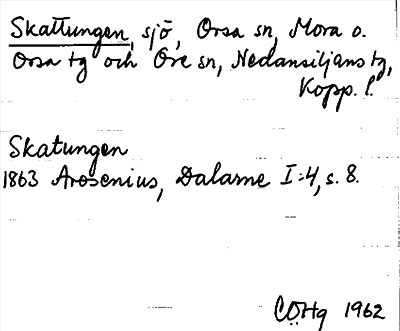 Skattungen, sjö, Orsa sn, Mora o.
Orsa tg och Ore sn, Nedansiljans tg,
Kopp. l.
Skatungen
1863 Arosenius, Dalarne I:4, s. 8.
CÖHg 1962